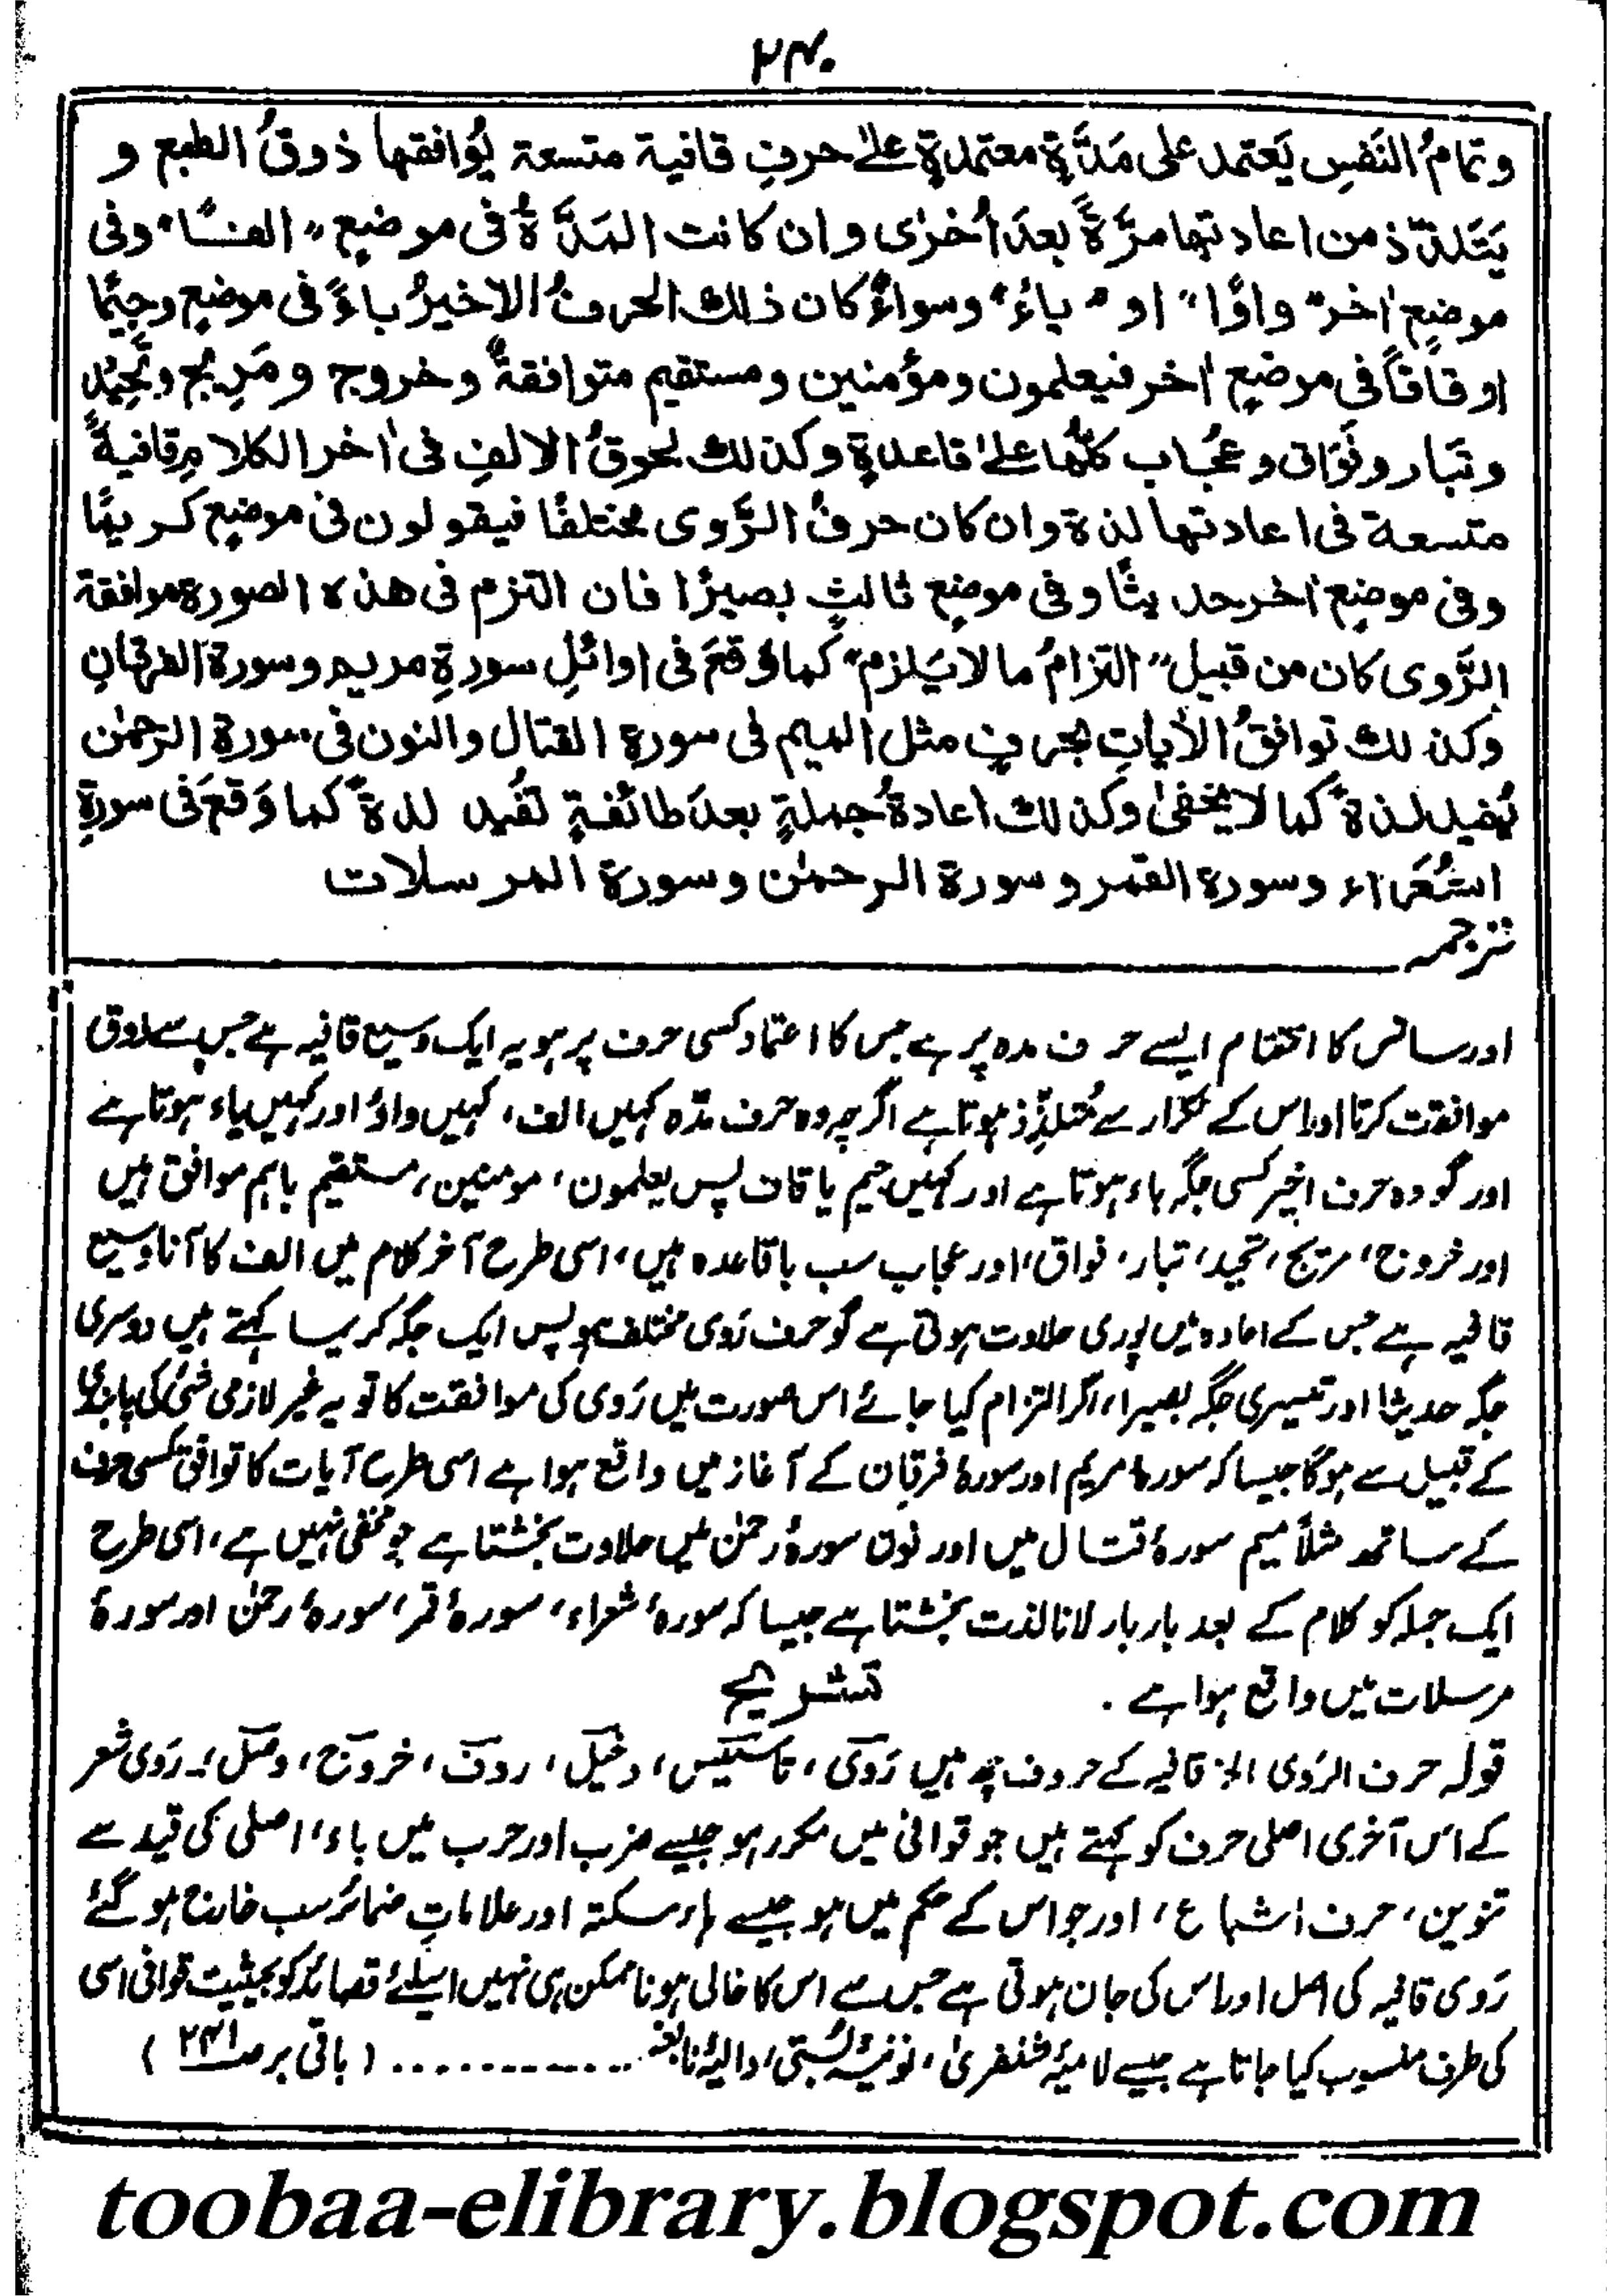 ۲۴۰
وتمامُ النَفسِ يَعتمد على مَدَّةٍ معتمدةٍ علىٰ حرفِ قافية متسعة يُوافقها ذوقُ الطبع و
يَتَلذّذ من اعادتها مرَّةً بعدَ اُخرٰى وان كانت المَدَّةُ فى موضع "الفًا" وفى
موضعٍ اٰخر "واوًا" او "ياءً" وسواءٌ كان ذلك الحرفُ الاخيرُ باءً فى موضع وجيمًا
او قافاً فى موضعٍ اٰخر فيعلمون ومؤمنين ومستقيم متوافقةٌ وخروج ومَرِيج وتَحِيْد
وتبار وفَوَاق وعُجاب كلُّها علىٰ قاعدةٍ وكذلك لحوقُ الالفِ فى اٰخر الكلامِ قافيةً
متسعة فى اعادتها لذة وان كان حرفُ الرَّوى مختلفًا فيقولون فى موضع كريمًا
وفى موضع اٰخر حديثًا وفى موضع ثالثٍ بصيرًا فان التزم فى هذه الصورة موافقة
الرَّوى كان من قبيل "التزامُ ما لا يَلزم" كما وَقعَ فى اوائلِ سورةِ مريم وسورة الفرقانِ
وكذلك توافقُ الاٰياتِ بحرفٍ مثل الميم فى سورة القتال والنون فى سورة الرحمٰن
يُفيد لذةً كما لا يخفىٰ وكذلك اعادةُ جملةٍ بعدَ طائفةٍ تفُيد لذةً كما وَقعَ فى سورةِ
الشُعَراء وسورة القمر وسورة الرحمٰن وسورة المرسلات
ترجمہ
اور سانس کا اختتام ایسے حرف مدہ پر ہے جس کا اعتماد کسی حرف پر ہو یہ ایک وسیع قافیہ ہے جس سے ذوق
موافقت کرتا اور اس کے تکرار سے مُتلذِّذ ہوتا ہے اگرچہ وہ حرف مدّہ کہیں الف، کہیں واؤ اور کہیں یاء ہوتا ہے
اور گو وہ حرف اخیر کسی جگہ باء ہوتا ہے اور کہیں جیم یا قاف پس یعلمون، مومنین، مستقیم باہم موافق ہیں
اور خروج، مریج، تحید، تبار، فواق، اور عجاب سب باقاعدہ ہیں، اسی طرح آخر کلام میں الف کا آنا وسیع
قافیہ ہے جس کے اعادہ میں پوری حلاوت ہوتی ہے گو حرف رَوی مختلف ہو پس ایک جگہ کریما کہتے ہیں دوسری
جگہ حدیثا اور تیسری جگہ بصیرا، اگر التزام کیا جائے اس صورت میں رَوی کی موافقت کا تو یہ غیر لازمی شئ کی پابندی
کے قبیل سے ہوگا جیسا کہ سورۂ مریم اور سورۂ فرقان کے آغاز میں واقع ہوا ہے اسی طرح آیات کا توافق کسی حرف
کے ساتھ مثلاً میم سورۂ قتال میں اور نون سورۂ رحمٰن میں حلاوت بخشتا ہے جو مخفی نہیں ہے، اسی طرح
ایک جملہ کو کلام کے بعد بار بار لانا لذت بخشتا ہے جیسا کہ سورۂ شعراء، سورۂ قمر، سورۂ رحمٰن اور سورۂ
مرسلات میں واقع ہوا ہے .
تشریح
قولہ حرف الرَوی الخ قافیہ کے حروف چھ ہیں رَوی، تاسیس، دخیل، ردف، خروج، وصل؛۔ رَوی شعر
کے اس آخری اصلی حرف کو کہتے ہیں جو قوافی میں مکرر ہو جیسے ضرب اور حرب میں باء، اصلی کی قید سے
تنوین، حرف اشباع، اور جو اس کے حکم میں ہو جیسے ہاء سکتہ اور علاماتِ ضمائر سب خارج ہو گئے
رَوی قافیہ کی اصل اور اس کی جان ہوتی ہے جس سے اس کا خالی ہونا ممکن ہی نہیں اسیلئے قصائد کو بحیثیت قوافی اسی
کی طرف منسوب کیا جاتا ہے جیسے لامیۂ شنفریٰ، نونیۂ بُستی، دالیۂ نابغہ ............ ( باقی بر صـ ۲۴۱ )
toobaa-elibrary.blogspot.com